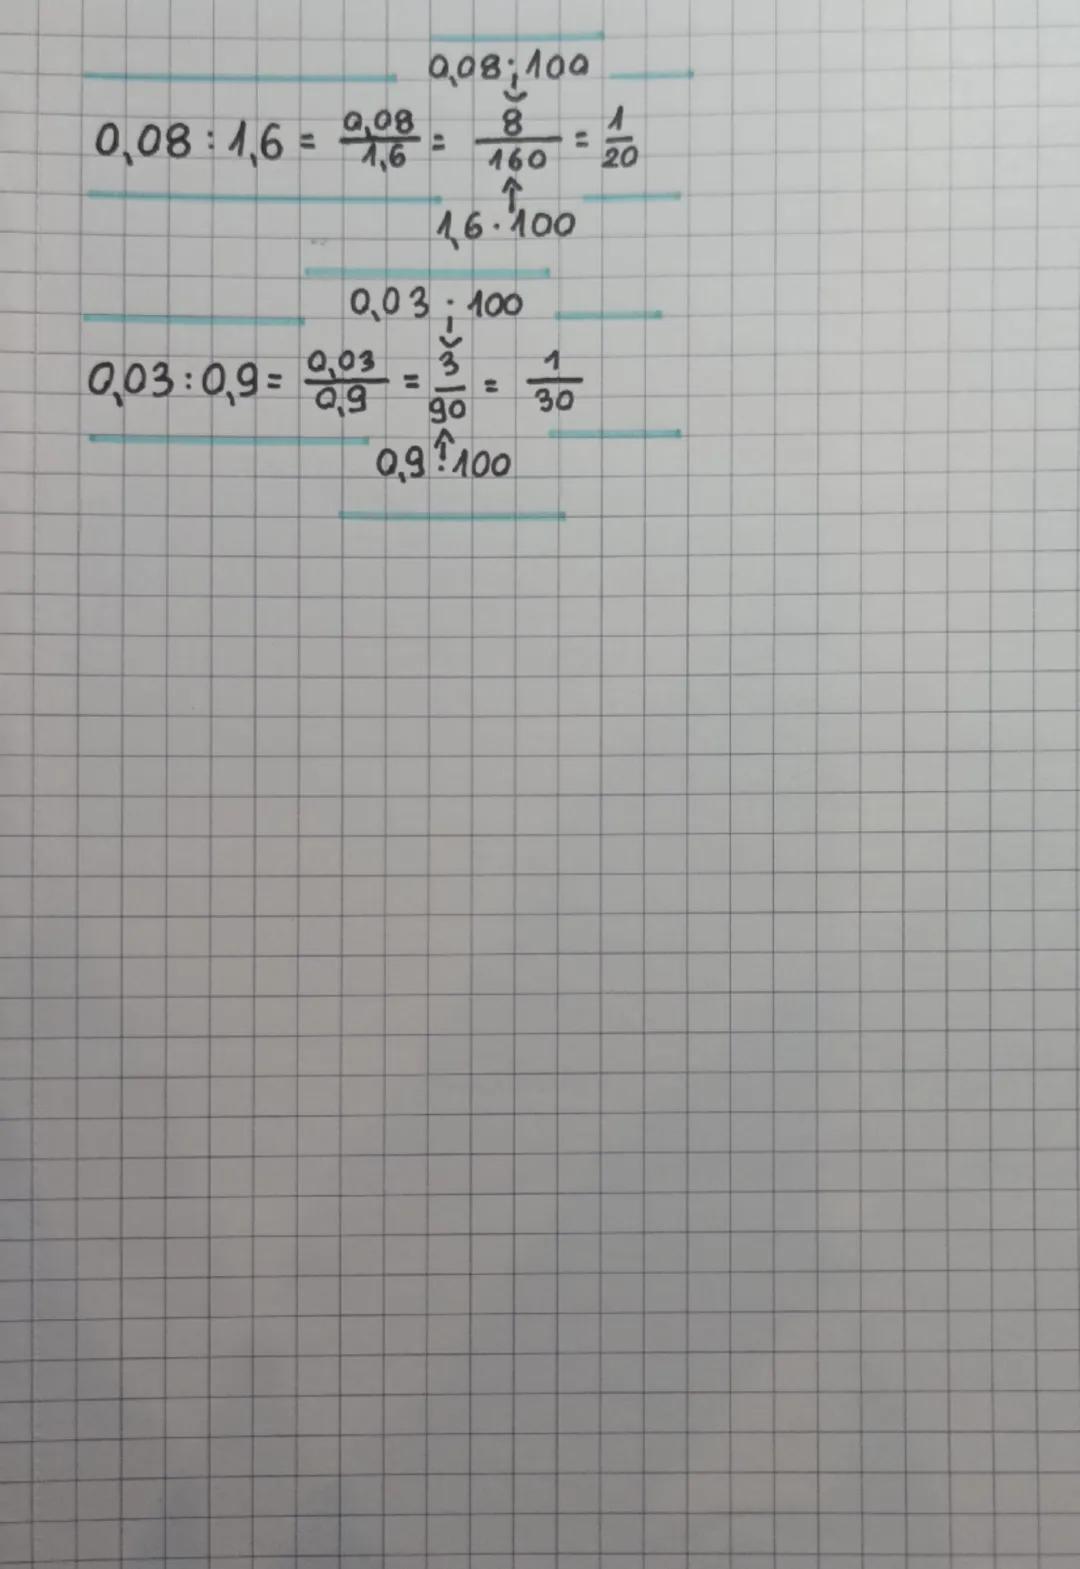 0,08 · 100
0,08 : 1,6 = 0,08/1,6 = 8/160 = 1/20
1,6 · 100
0,03 · 100
0,03 : 0,9 = 0,03/0,9 = 3/90 = 1/30
0,9 · 100